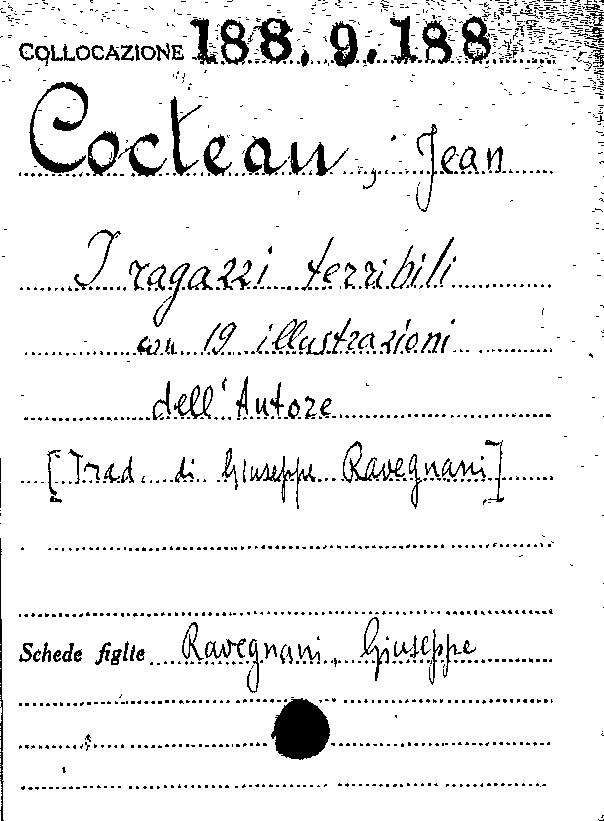 COLLOCAZIONE 188.9.188
Cocteau, Jean
I ragazzi terribili
con 19 illustrazioni
dell'Autore
[Trad. di Giuseppe Ravegnani]
Schede figlie Ravegnani, Giuseppe